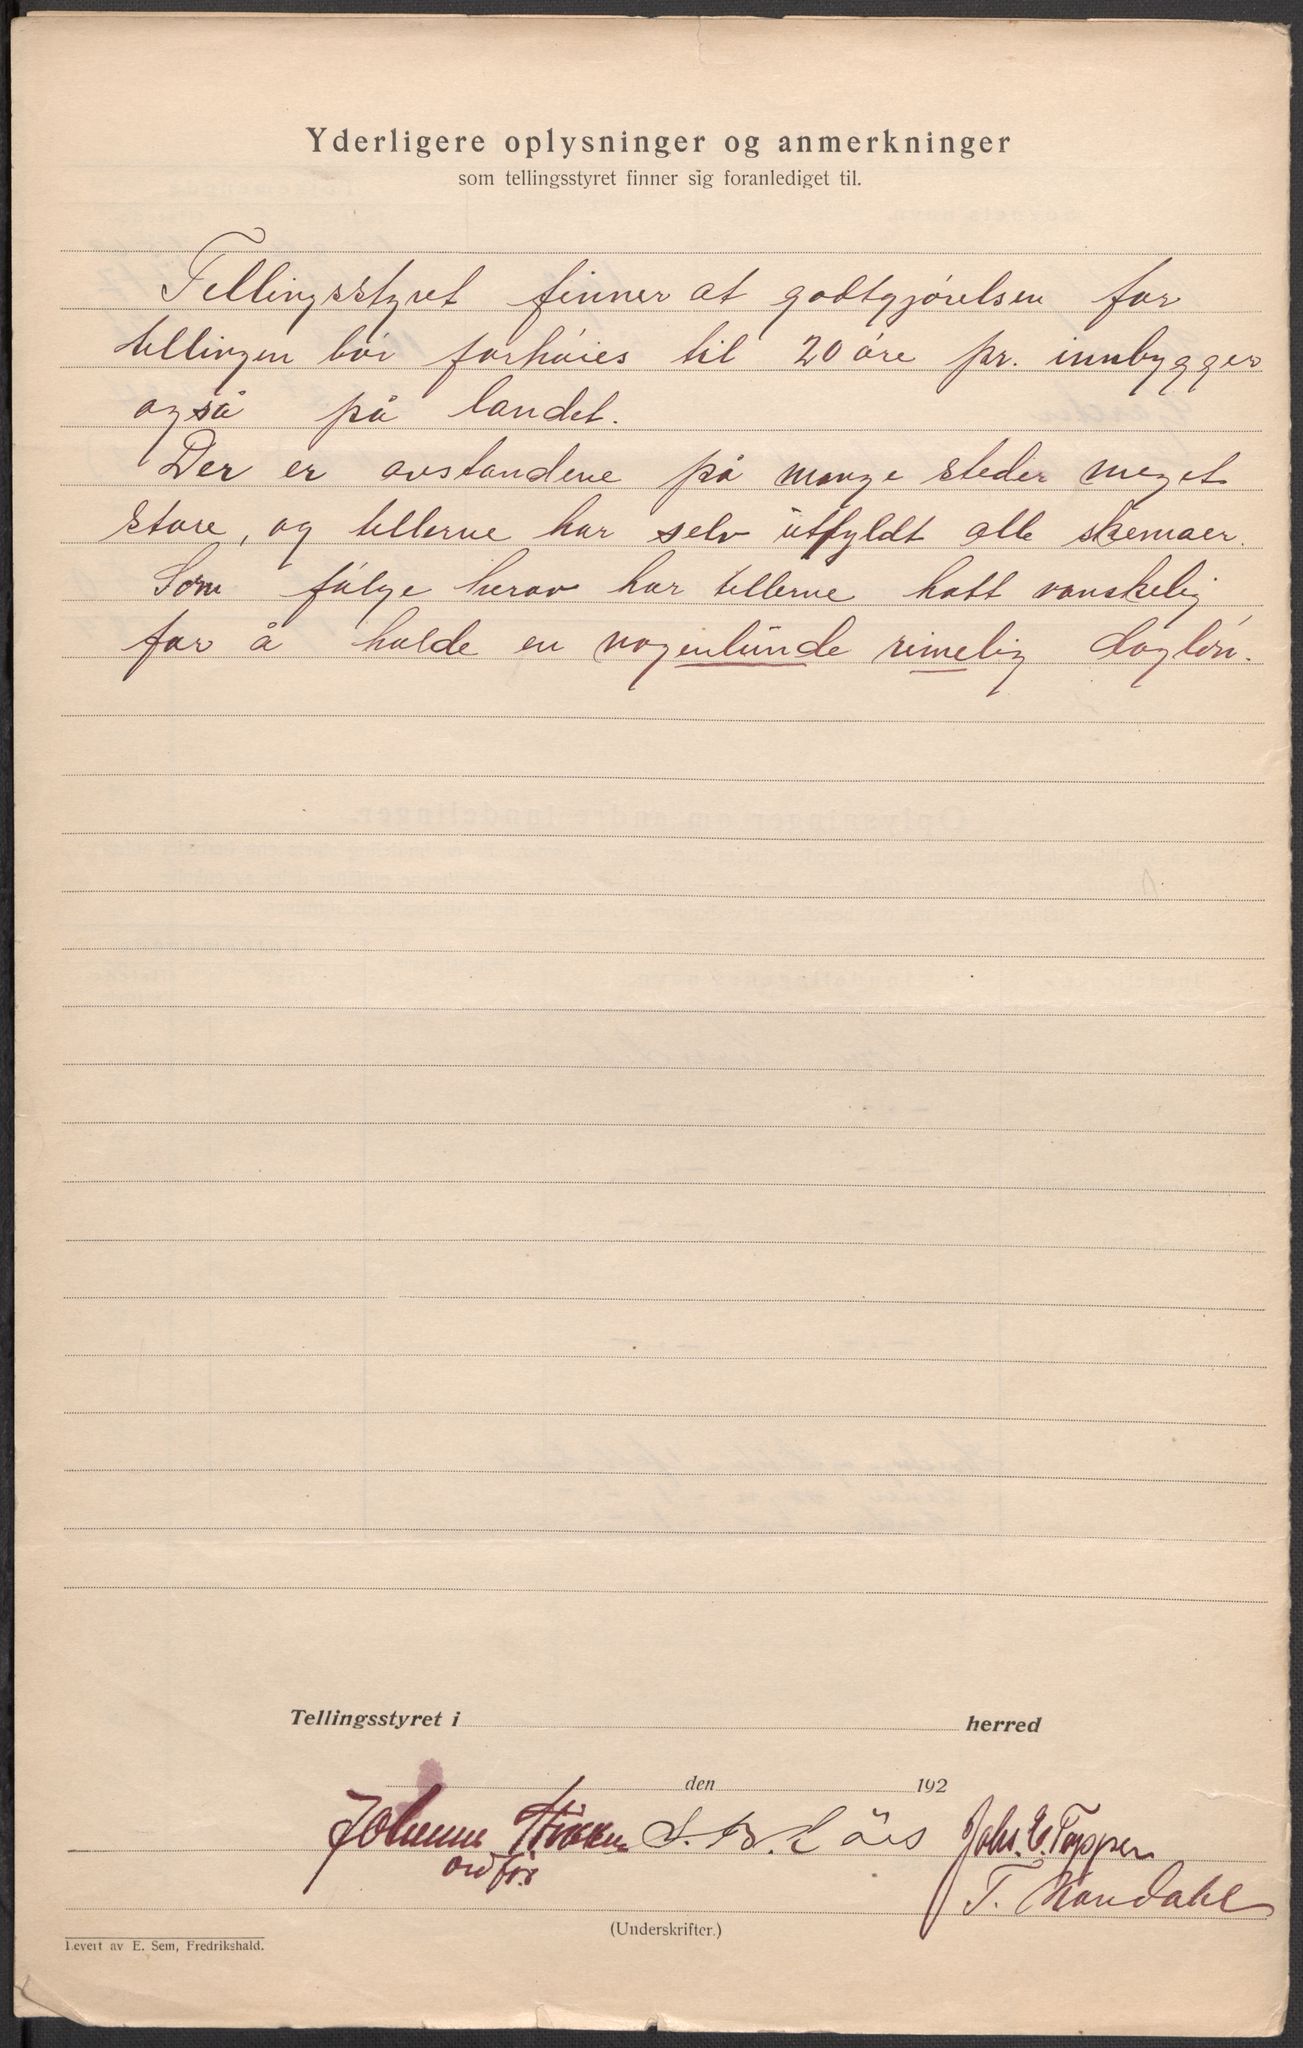 Yderligere oplysninger og anmerkninger
som tellingsstyret finner sig foranlediget til.
Tellingsstyret finner at godtgjørelsen for
tellingen bør forhøies til 20 øre pr. innbygger
også på landet.
Der er avstandene på mange steder meget
store, og tellerne har selv utfyldt alle skemaer.
Som følge herav har tellerne hatt vanskelig
for å holde en nogenlunde rimelig dagløn.
Tellingsstyret i herred
den 192
Johannes S. B. Johs. E. Topper
ordfør T. Nordahl
(Underskrifter.)
Levert av E. Sem, Fredrikshald.